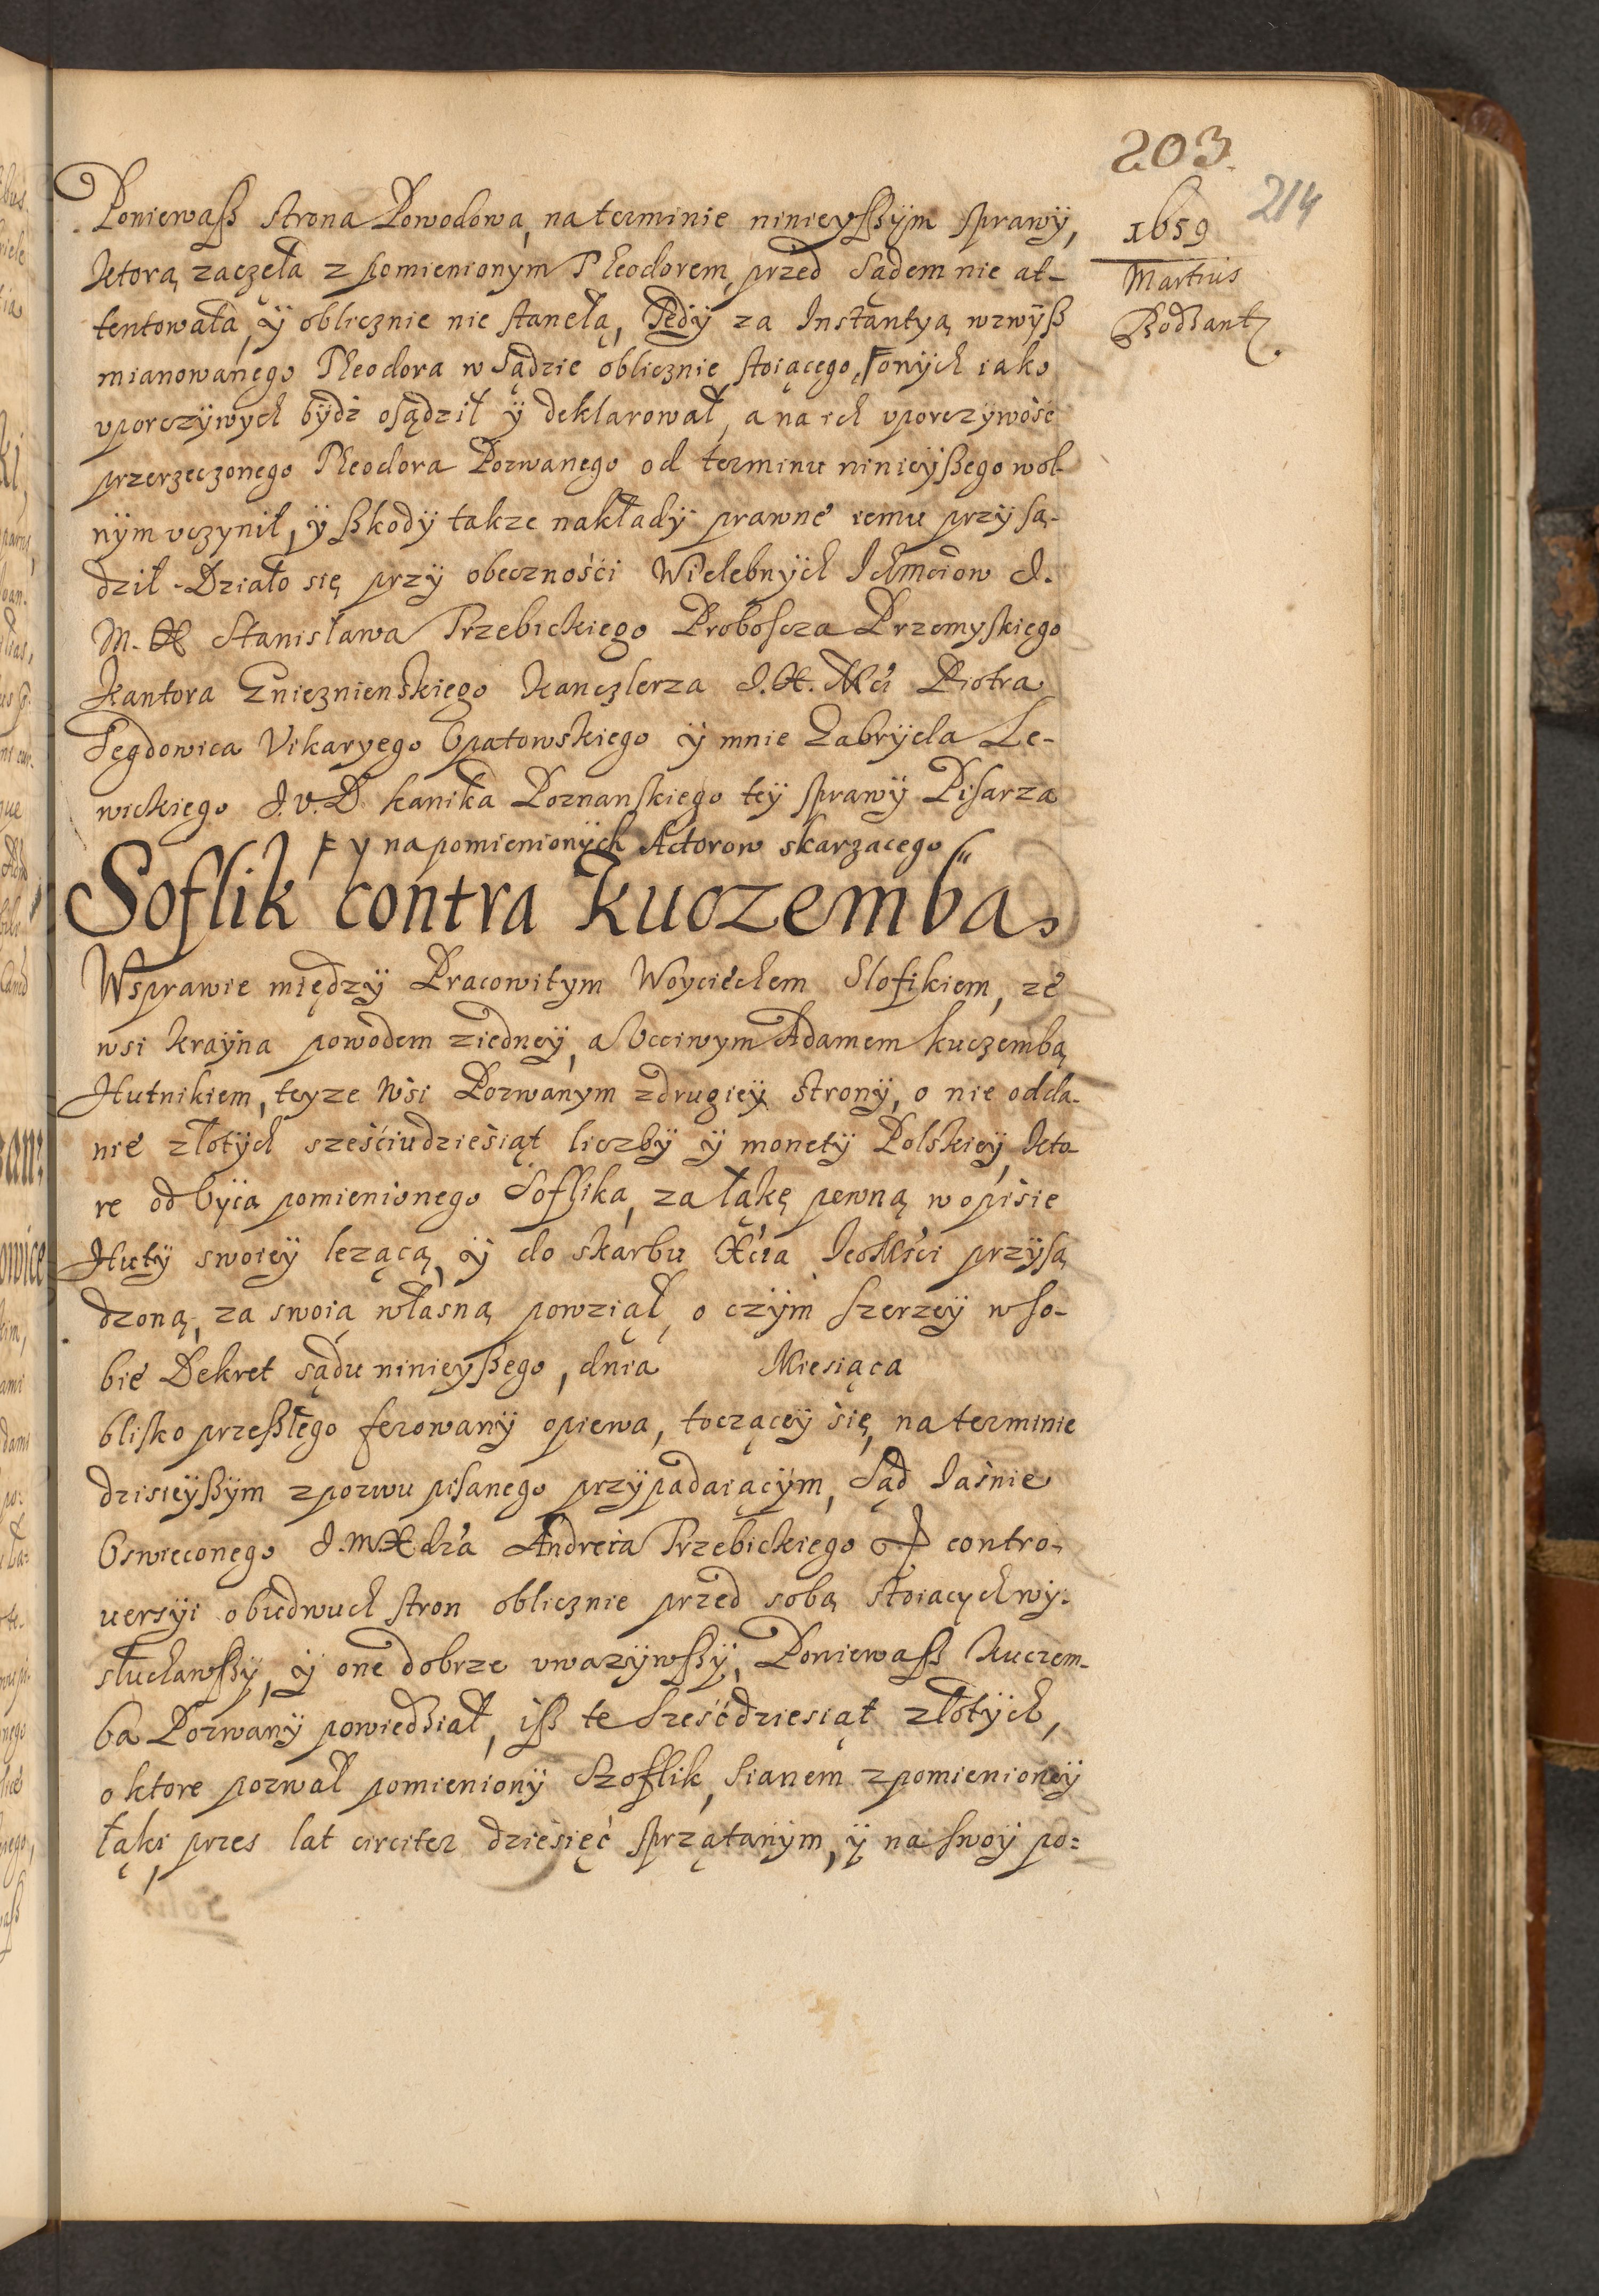 203.
214
1659
Martius
Bodzant.
Poniewaß strona Powodowa, na terminie ninieyßÿm sprawÿ,
ktorą zaczęła z pomienionym Theodorem, przed Sądem nie at-
tentowała, ÿ oblicznie nie stanęła, Tedÿ za Instantyą wzwÿß
mianowanego Theodora w Sądzie oblicznie stoiącego, onÿch iako
vporczÿwych bÿdź osądził ÿ deklarował, a na ich vporczÿwość
przerzeczonego Theodora Pozwanego od terminu ninieÿßego wol-
nÿm vczynił, ÿ ßkodÿ takze nakładÿ prawne iemu przÿsą-
dził. Działo się przÿ obecznośći Wielebnÿch Ichmciow J.
M. X Stanisława Trzebickiego Proboscza Przemyskiego
Kantora Gnieznienskiego Kanczlerza J.X.Mći Piotra
Tegdowica Vikaryego Opatowskiego ÿ mnie Gabrÿela Le-
wickiego J.V.D. kanika Poznanskiego teÿ sprawÿ Pisarza
y na pomienionÿch Actorow skarzacego
Soflik contra Kuczemba
Wsprawie międzÿ Pracowitym Woyciechem Slofikiem, ze
wsi Kraÿna powodem ziedneÿ, a Vcciwym Adamem Kuczembą
Hutnikiem, teyze Wsi Pozwanym zdrugieÿ stronÿ, o nie odda-
nie złotÿch sześciudziesiąt liczbÿ ÿ monetÿ Polskieÿ, kto-
re od Oÿca pomienionego Soflika, za łąkę pewną w opisie
Hutÿ swoieÿ lezącą, ÿ do skarbu Xcia Jeo Mści przÿsą
dzoną, za swoią własną powziął, o czÿm szerzeÿ wso-
bie Dekret sądu ninieyßego, dnia Miesiąca
blisko przeßłego ferowanÿ opiewa, tocząceÿ się, na terminie
dzisieÿßÿm z pozwu pisanego przÿpadaiącÿm, Sąd Iaśnie
Oswieconego J.M.X dza Andreia Trzebickiego contro-
uersÿi obudwuch stron oblicznie przed sobą stoiacych wÿ-
słuchawßÿ, ÿ one dobrze vwazÿwßÿ, Poniewaß Kuczem-
ba Pozwanÿ powiedział, iß te Sześćdziesiąt złotÿch,
o ktore pozwał pomienionÿ Szoflik, sianem z pomienioneÿ
łąki przes lat circiter dziesięć sprzątanÿm, ÿ na swoÿ po-